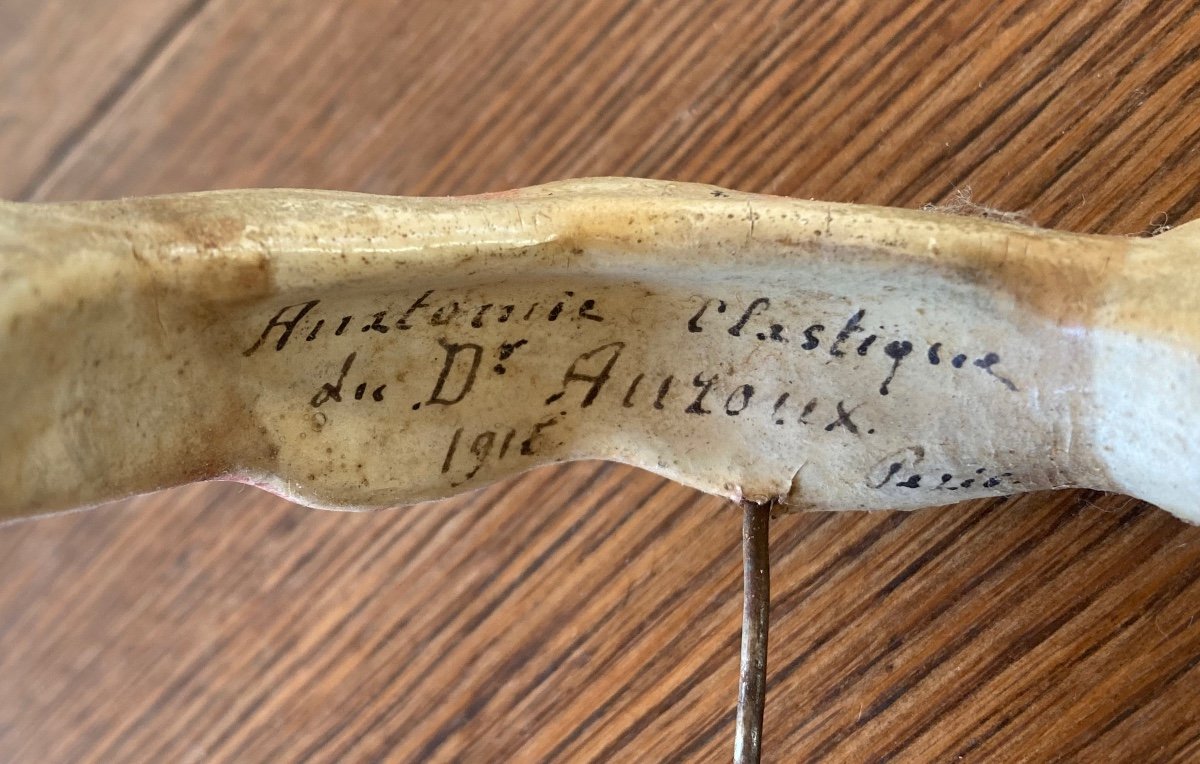 Anatomie Clastique
du Dr Auzoux.
Paris